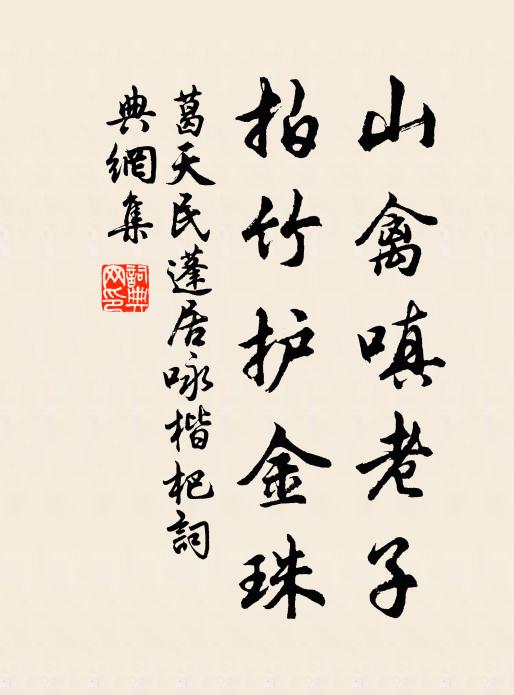 山禽嗔老子
拍竹护金珠
葛天民蓬居咏楷杷詞
典網集
詞典
网印